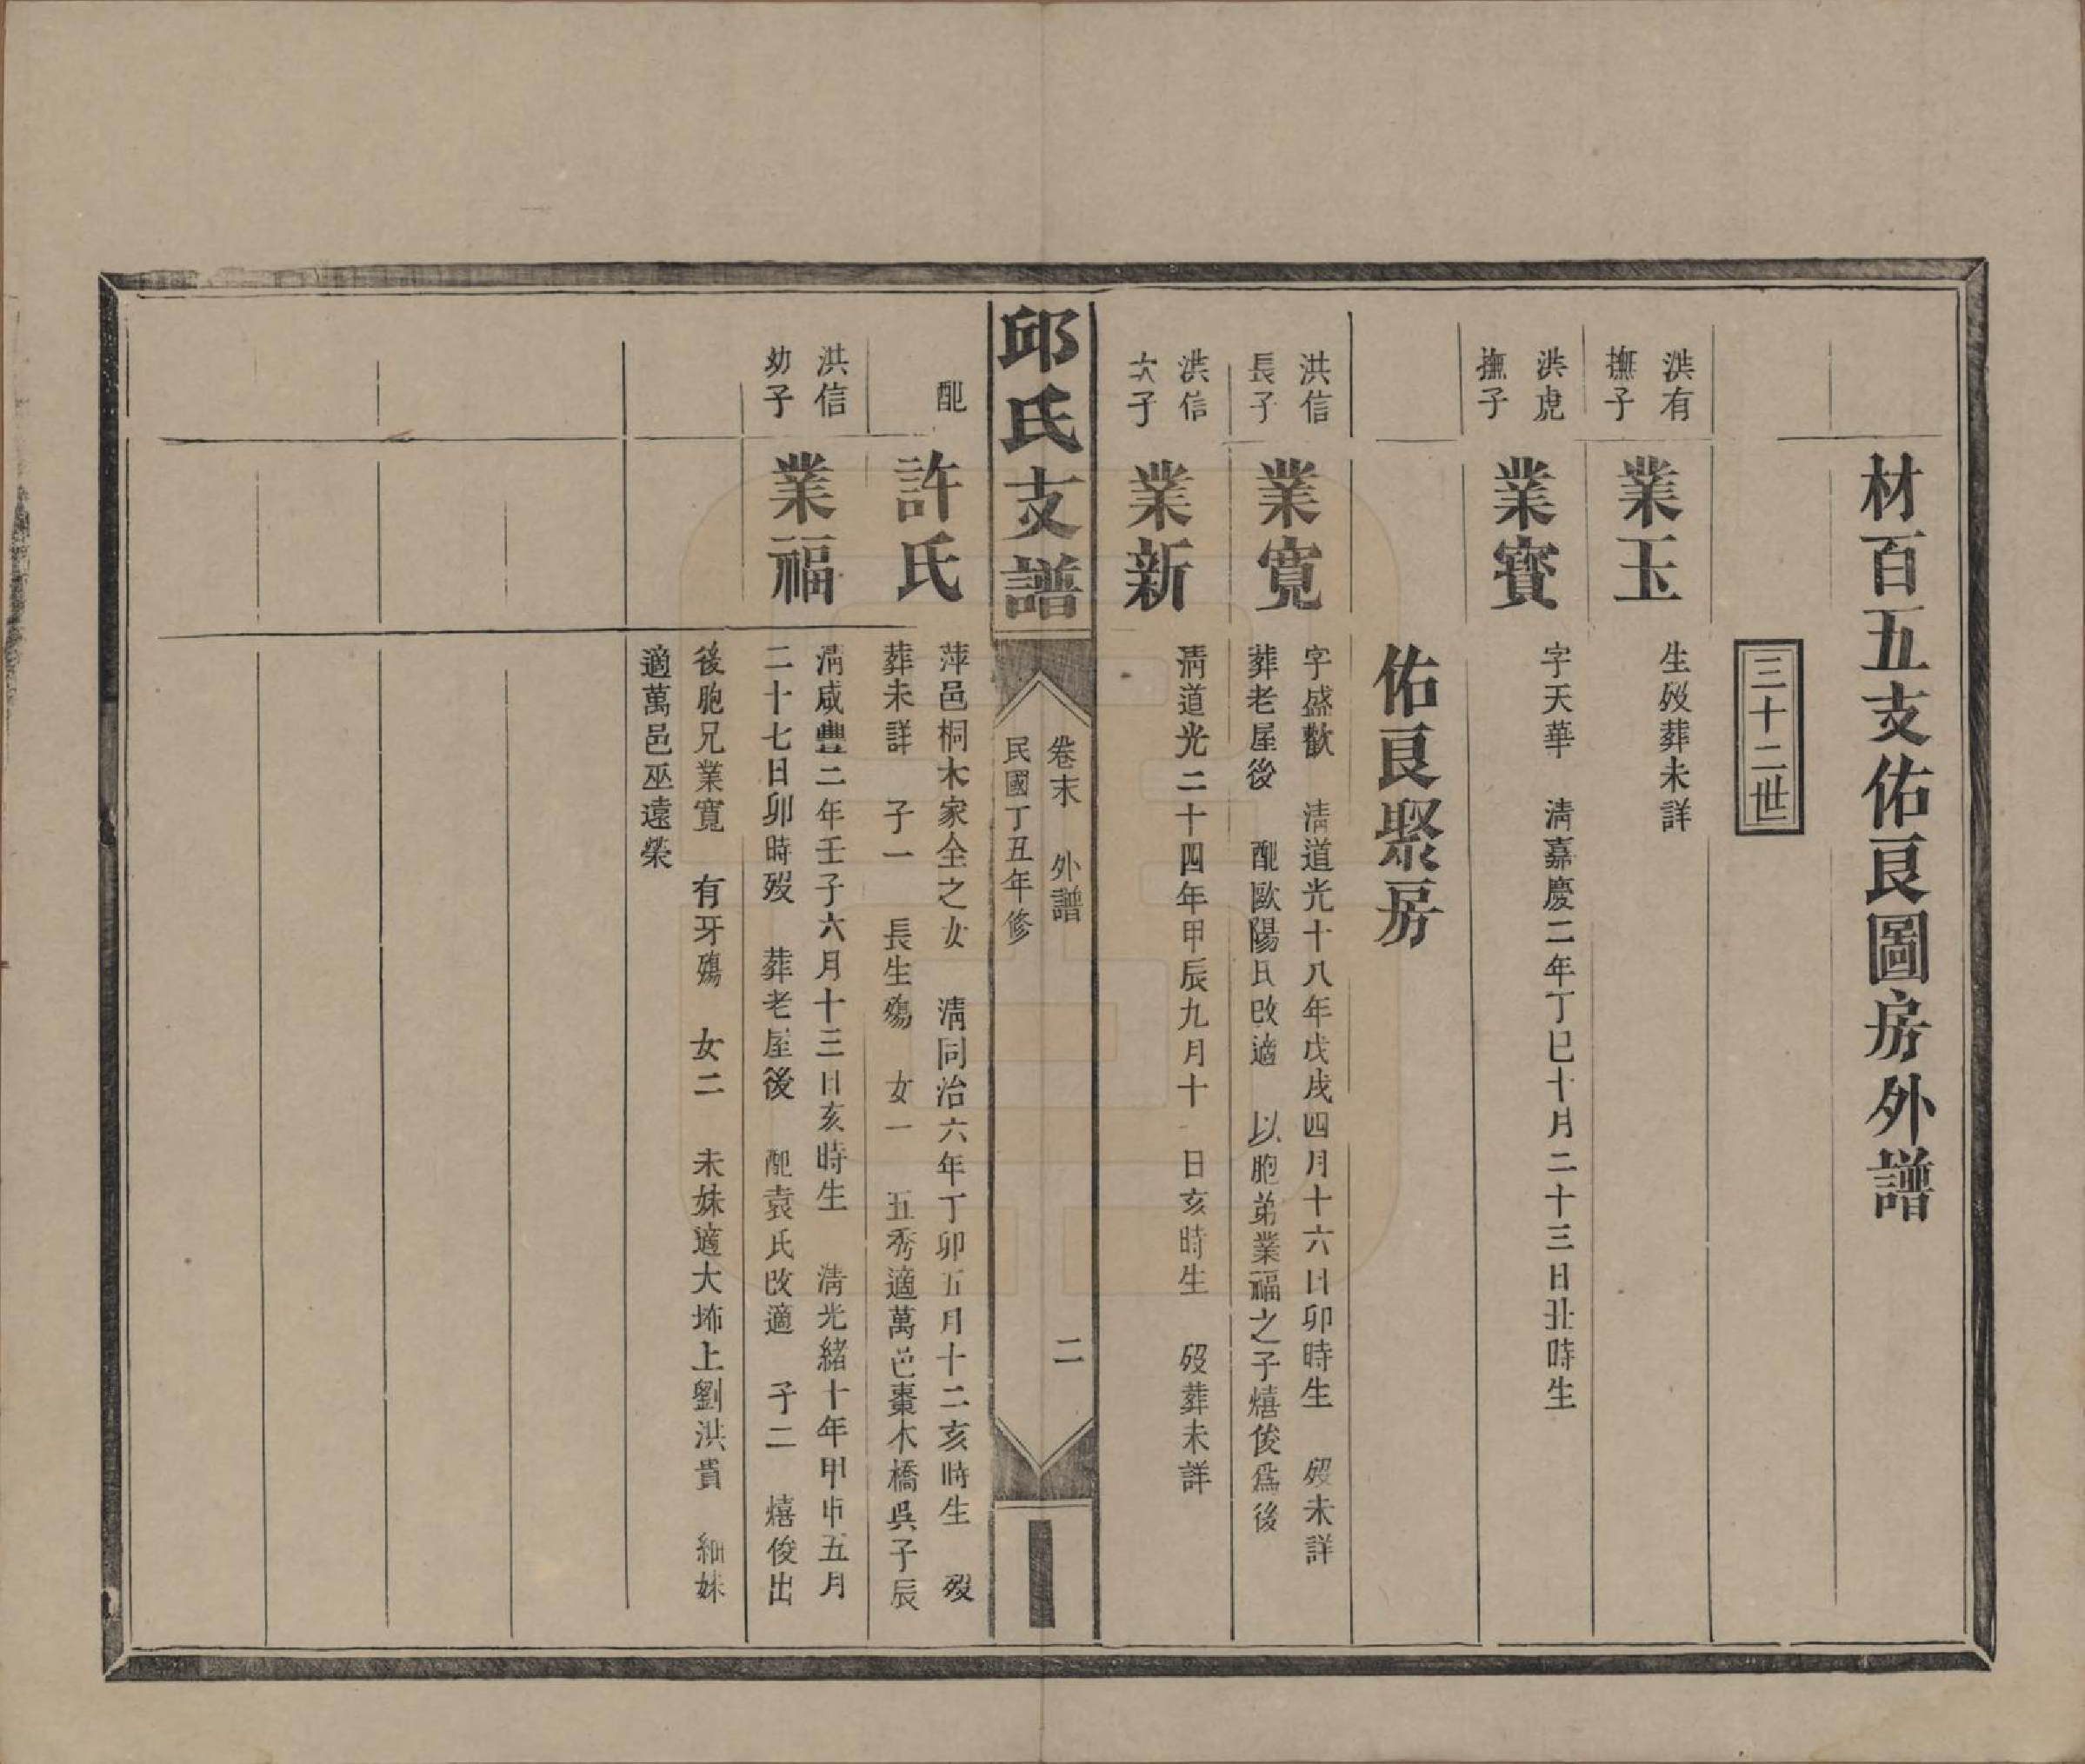 材百五支佑良圖房外譜
三十二世
洪有
撫子
業玉
生殁葬未詳
洪虎
撫子
業寳
字天華　淸嘉慶二年丁巳十月二十三日丑時生
佑良聚房
洪信
長子
業寬
字盛歡　淸道光十八年戊戌四月十六日卯時生　殁未詳
葬老屋後　配歐陽氏改適　以胞弟業福之子熺俊爲後
洪信
次子
業新
淸道光二十四年甲辰九月十　日亥時生　殁葬未詳
邱氏支譜
卷末　外譜　二
民國丁丑年修
配
許氏
萍邑桐木家全之女　淸同治六年丁卯五月十二亥時生　殁
葬未詳　子一　長生殤　女一　五秀適萬邑棗木橋吳子辰
洪信
幼子
業福
淸咸豐二年壬子六月十三日亥時生　淸光緒十年甲申五月
二十七日卯時殁　葬老屋後　配袁氏改適　子二　熺俊出
後胞兄業寬　有牙殤　女二　未妹適大㘵上劉洪貴　細妹
適萬邑巫遠榮